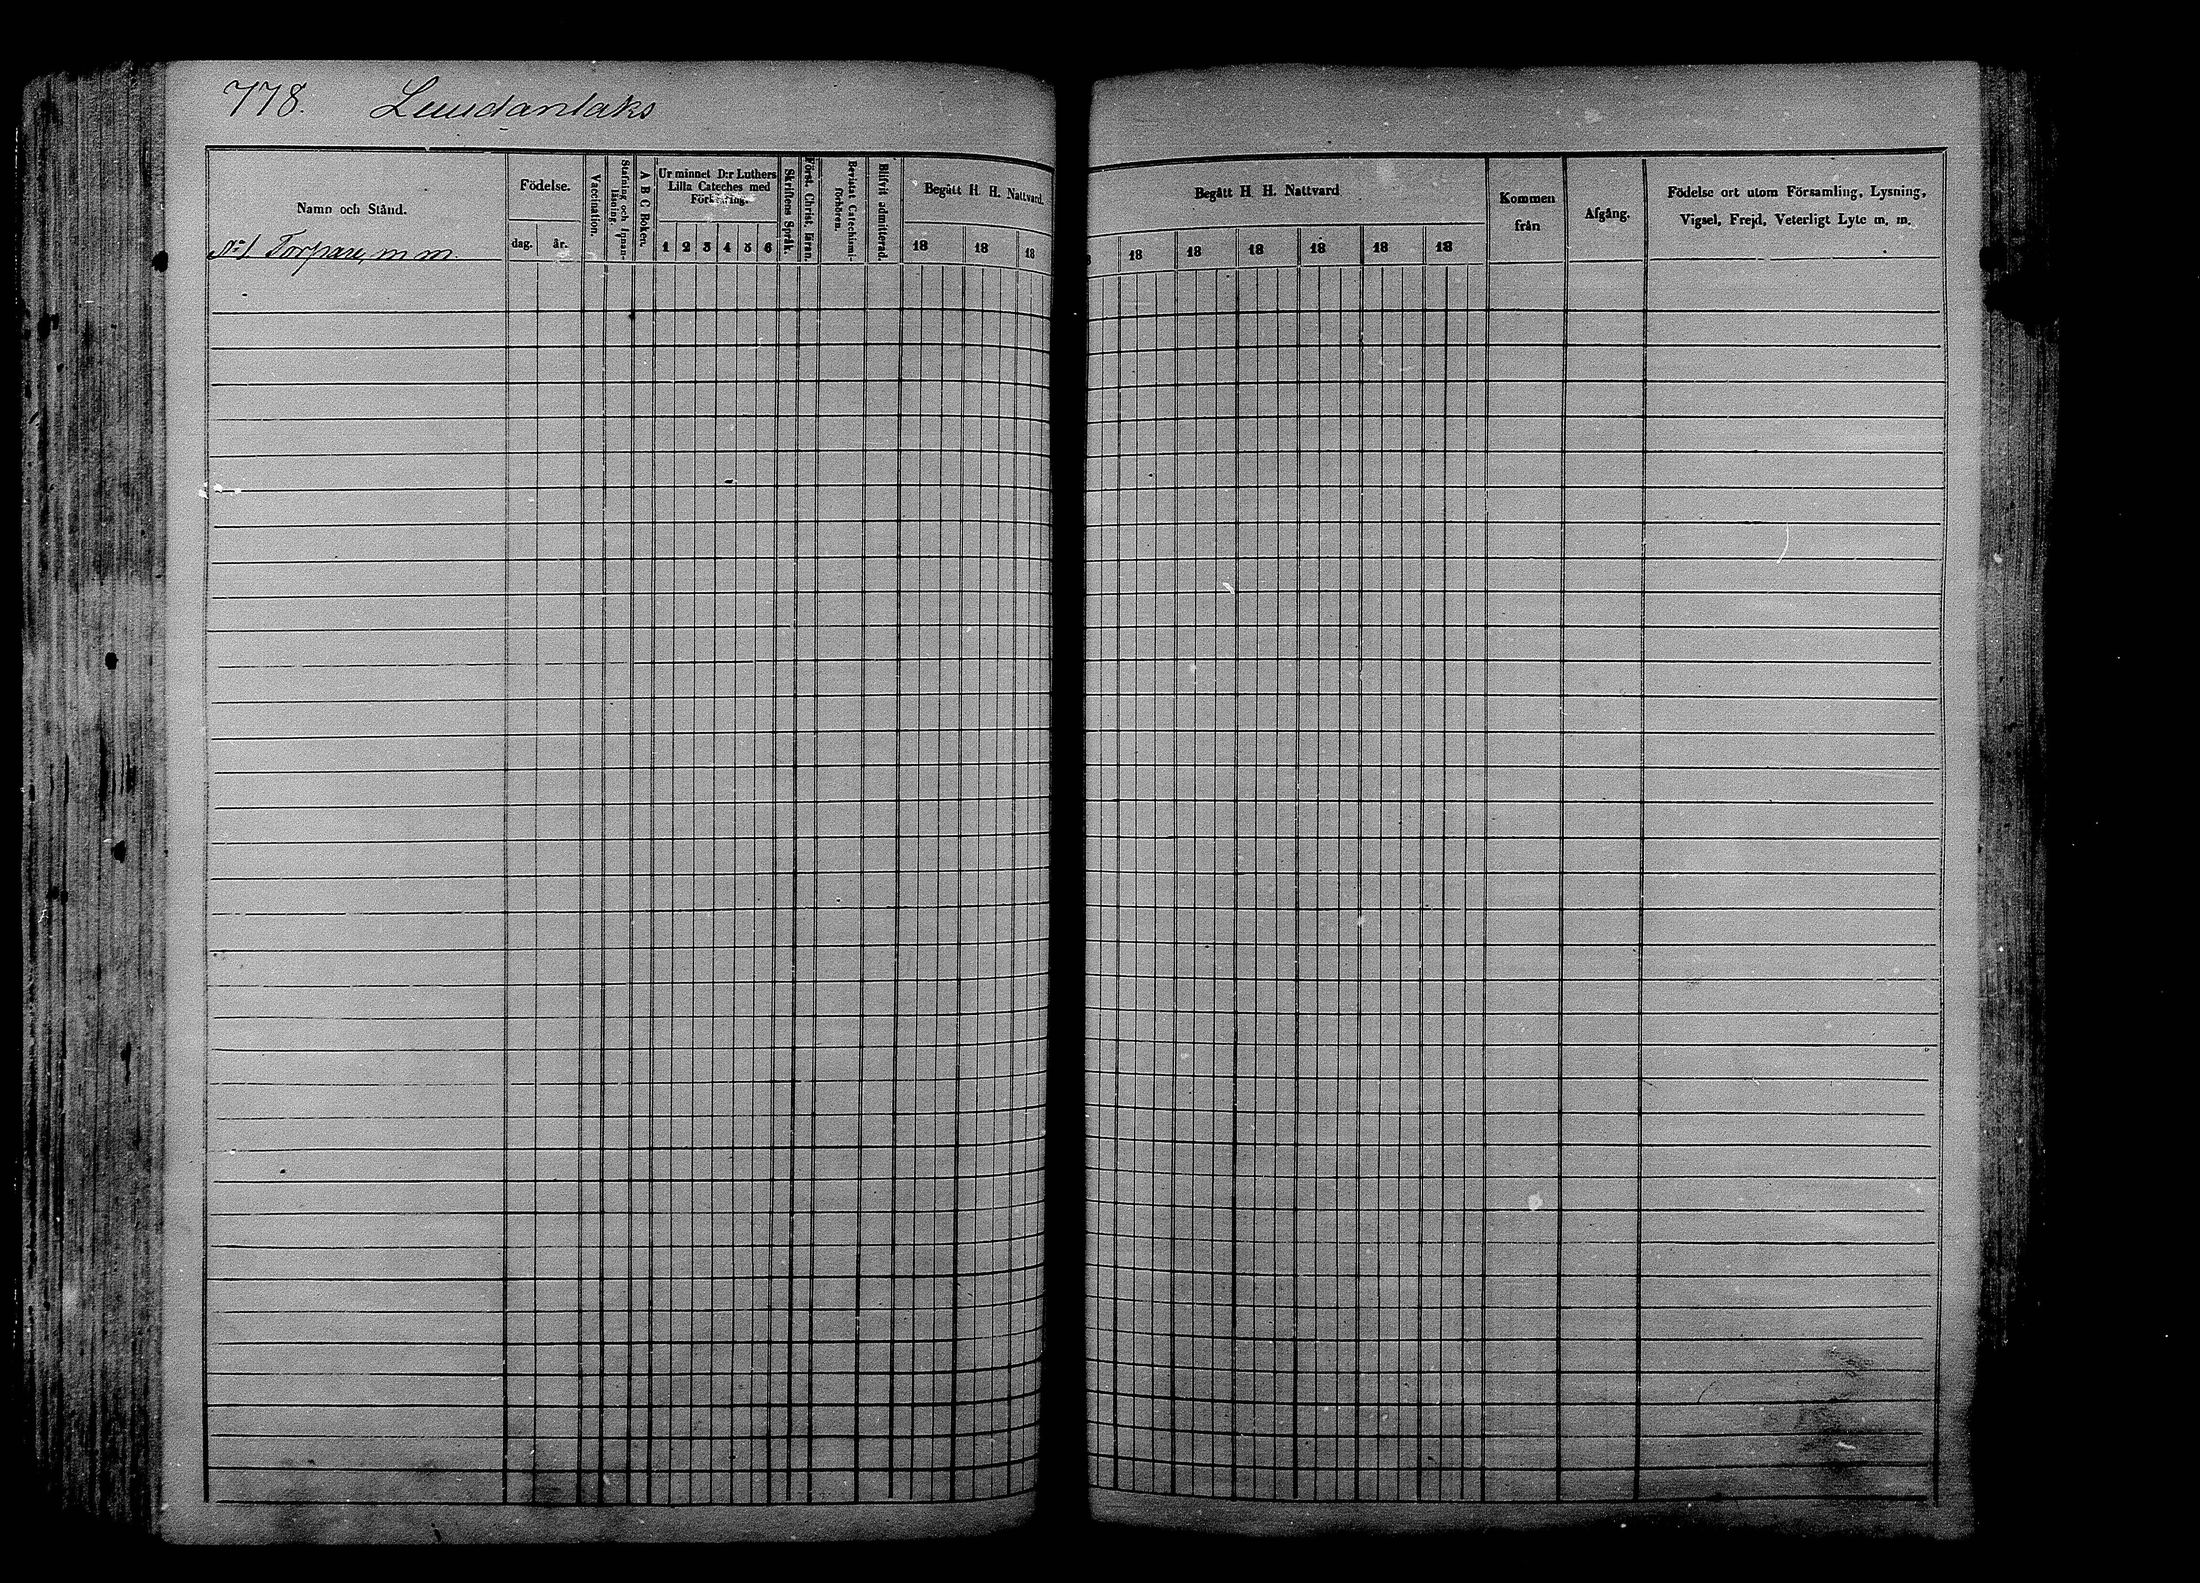 778. Luudanlaks
Namn och Stånd.
Födelse.
dag. år.
Vaccination.
Stafning och Innan-
läsning.
A B C Boken.
Ur minnet D:r Luthers
Lilla Cateches med
Förklaring.
1 2 3 4 5 6
Skriftens Språk.
Först. Christ.läran.
Bevistat Catechismi-
förhören.
Blifvit admitterad.
Begått H. H. Nattvard.
18 18 18
N:o 1 Torpare, m m
Begått H. H. Nattvard
18 18 18 18 18 18
Kommen
från
Afgång.
Födelse ort utom Församling, Lysning,
Vigsel, Frejd, Veterligt Lyte m. m.